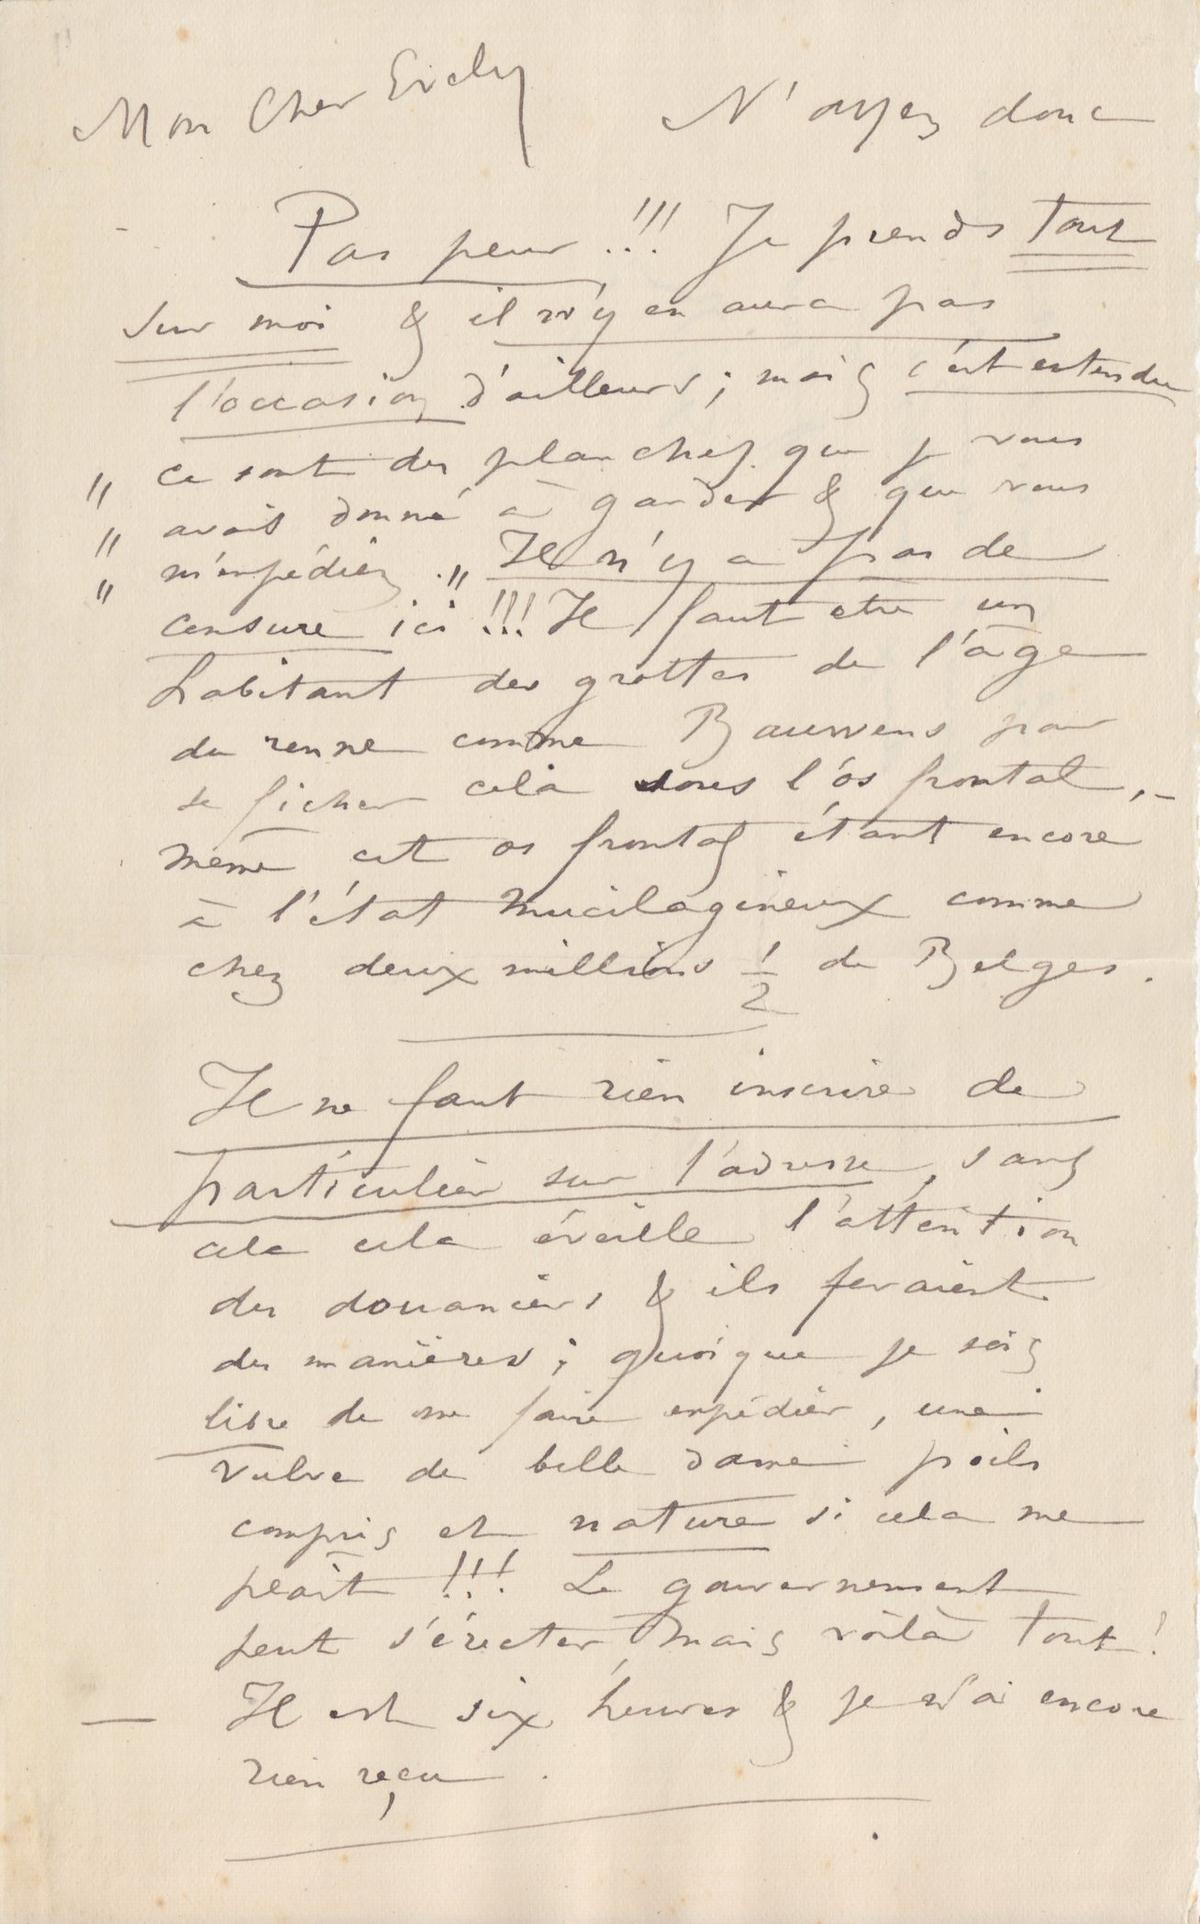 Mon Cher Evely N'ayez donc
Pas peur !!! Je prends tout
sur moi & il n'y en aura pas
l'occasion d'ailleurs ; mais c'est entendu
" ce sont des planches que je vous
" avais donné à garder & que vous
" m'expédiez ." Il n'y a pas de
censure ici !!! Il faut etre un
habitant des grottes de l'âge
du renne comme Bauwens pour
se ficher celà sous l'os frontal, –
même cet os frontal étant encore
à l'état mucilagineux comme
chez deux millions 1/2 de Belges.
Il ne faut rien inscrire de
particulier sur l'adresse, sans
cela cela éveille l'attention
des douaniers & ils feraient
des manières ; quoique je sois
libre de me faire expédier, une
vulve de belle dame poils
compris et nature si cela me
plait !!! Le gouvernement
peut s'érecter, mais voilà tout !
— Il est six heures & je n'ai encore
rien reçu .